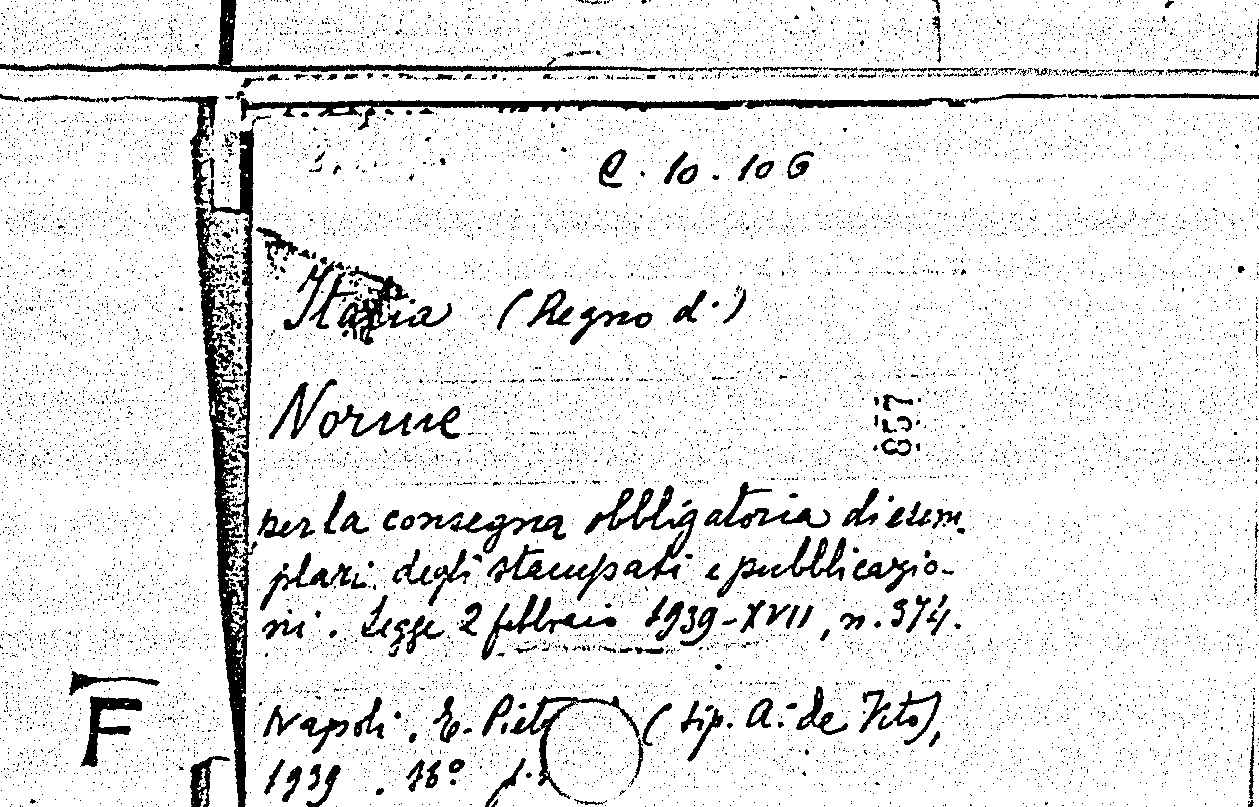 C. 10. 10 G
Italia (Regno d')
Norme
857
per la consegna obbligatoria di esem-
plari degli stampati e pubblicazio-
ni. Legge 2 febbraio 1939-XVII, n. 374.
F
Napoli, E. (tip. A. de Vito),
1939. 16°